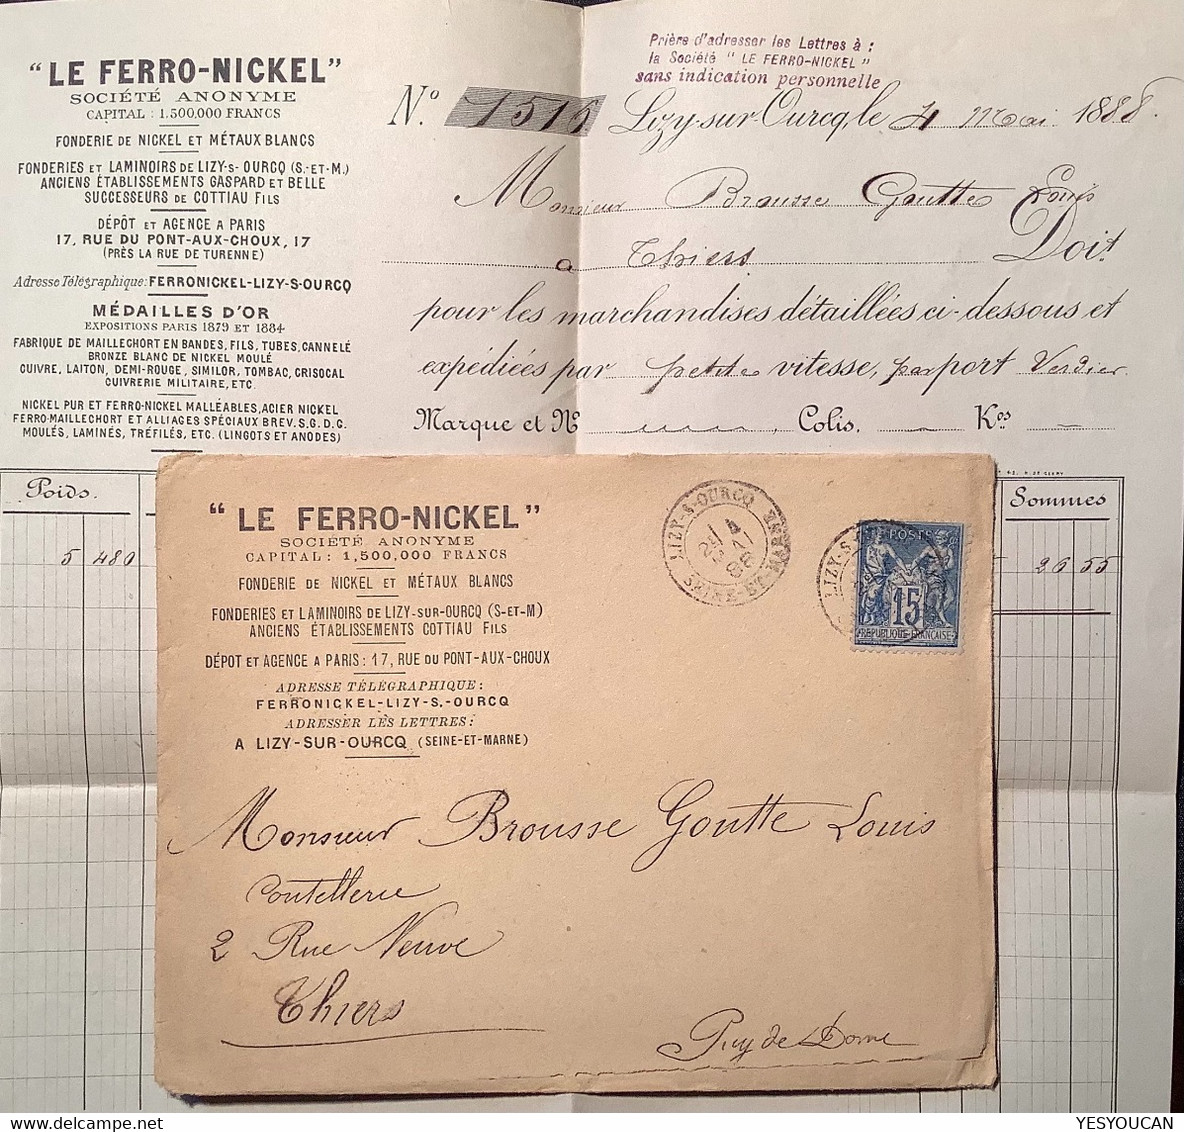 "LE FERRO-NICKEL"
SOCIÉTÉ ANONYME
CAPITAL : 1,500,000 FRANCS
FONDERIE DE NICKEL ET MÉTAUX BLANCS
FONDERIES ET LAMINOIRS DE LIZY-S-OURCQ (S.-ET-M.)
ANCIENS ÉTABLISSEMENTS GASPARD ET BELLE
SUCCESSEURS DE COTTIAU FILS
DÉPÔT ET AGENCE A PARIS
17, RUE DU PONT-AUX-CHOUX, 17
(PRÈS LA RUE DE TURENNE)
Adresse Télégraphique: FERRONICKEL-LIZY-S-OURCQ
MÉDAILLES D'OR
EXPOSITIONS PARIS 1879 ET 1884
FABRIQUE DE MAILLECHORT EN BANDES, FILS, TUBES, CANNELÉ
BRONZE BLANC DE NICKEL MOULÉ
CUIVRE, LAITON, DEMI-ROUGE, SIMILOR, TOMBAC, CRISOCAL
CUIVRERIE MILITAIRE, ETC.
NICKEL PUR ET FERRO-NICKEL MALLÉABLES, ACIER NICKEL
FERRO-MAILLECHORT ET ALLIAGES SPÉCIAUX BREV. S.G.D.G.
MOULÉS, LAMINÉS, TRÉFILÉS, ETC. (LINGOTS ET ANODES)
Prière d'adresser les Lettres à :
la Société "LE FERRO-NICKEL"
sans indication personnelle
N° 1516 Lizy-sur-Ourcq, le 4 Mai 1888
Monsieur Brousse Goutte Louis
a Thiers Doit
pour les marchandises détaillées ci-dessous et
expédiées par petite vitesse, par port Verdier
Marque et N° Colis. Kos
Poids. Sommes
5 480 26 55
"LE FERRO-NICKEL"
SOCIÉTÉ ANONYME
CAPITAL : 1,500,000 FRANCS
FONDERIE DE NICKEL ET MÉTAUX BLANCS
FONDERIES ET LAMINOIRS DE LIZY-SUR-OURCQ (S-ET-M)
ANCIENS ÉTABLISSEMENTS COTTIAU FILS
DÉPOT ET AGENCE A PARIS : 17, RUE DU PONT-AUX-CHOUX
ADRESSE TÉLÉGRAPHIQUE :
FERRONICKEL-LIZY-S.-OURCQ
ADRESSER LES LETTRES :
A LIZY-SUR-OURCQ (SEINE-ET-MARNE)
LIZY-S-OURCQ
SEINE-ET-MARNE
LIZY-S
POSTES
15
REPUBLIQUE FRANÇAISE
Monsieur Brousse Goutte Louis
Coutellerie
2 Rue Neuve
Thiers
Puy de Dome
YESYOUCAN